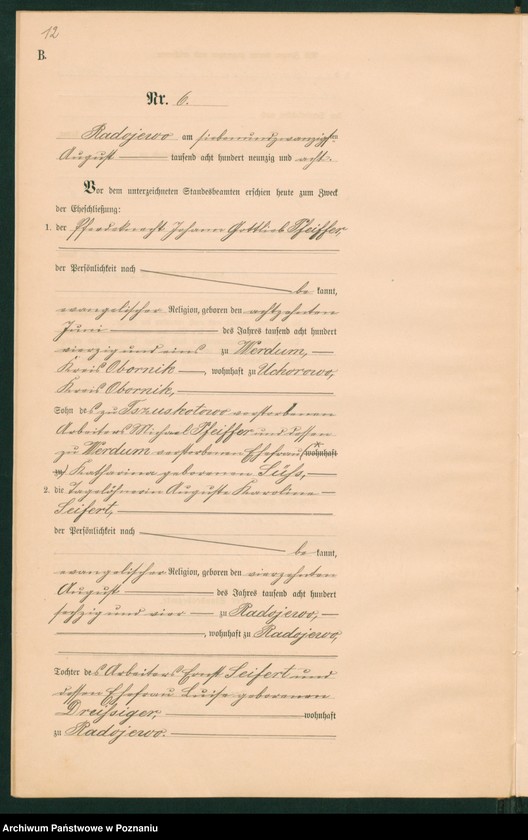 12
B.
Nr. 6.
Radojewo am siebenundzwanzigsten
August tausend acht hundert neunzig und acht.
Vor dem unterzeichneten Standesbeamten erschien heute zum Zweck
der Eheschließung:
1. der Pferdeknecht Johann Gottlieb Pfeiffer,
der Persönlichkeit nach
be kannt,
evangelischer Religion, geboren den achtzehnten
Juni des Jahres tausend acht hundert
vierzig und eins zu Werdum,
Kreis Obornik, wohnhaft zu Uchorowo,
Kreis Obornik,
Sohn des zu verstorbenen
Arbeiters Michael Pfeiffer und dessen
zu Werdum verstorbenen Ehefrau (wohnhaft
zu) Katharina geborenen Süss,
2. die Tagelöhnerin Auguste Karoline
Seifert,
der Persönlichkeit nach
be kannt,
evangelischer Religion, geboren den vierzehnten
August des Jahres tausend acht hundert
sechzig und vier zu Radojewo,
, wohnhaft zu Radojewo,
Tochter des Arbeiters Ernst Seifert und
dessen Ehefrau Luise geborenen
Dreißiger, wohnhaft
zu Radojewo.
Archiwum Państwowe w Poznaniu